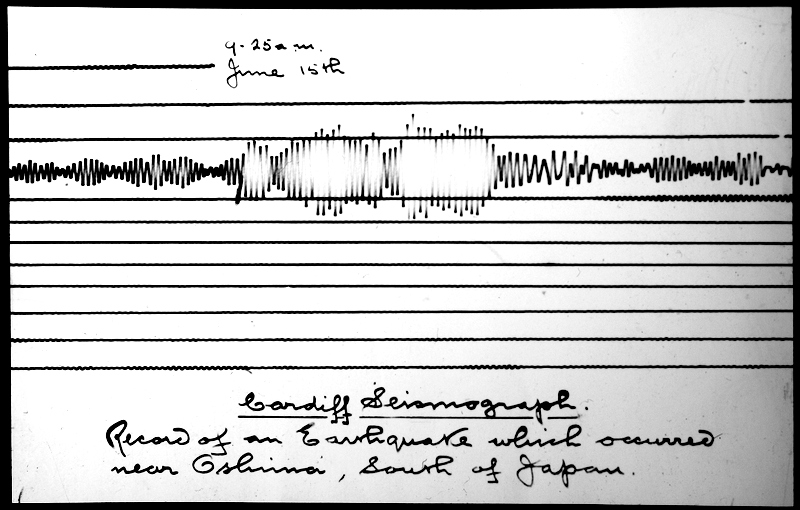 9-25a.m.
June 15th
Cardiff Seismograph.
Record of an Earthquake which occurred
near Oshima, South of Japan.